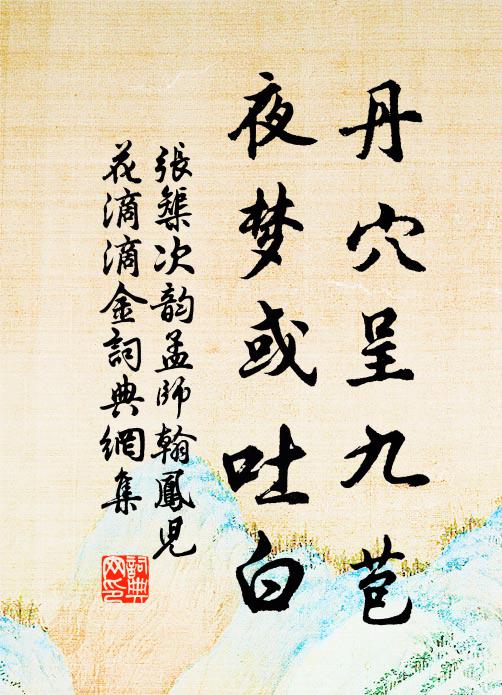 丹穴呈九苞
夜梦或吐白
張榘次韵孟師翰鳳児
花滴滴金詞典網集
詞典网印